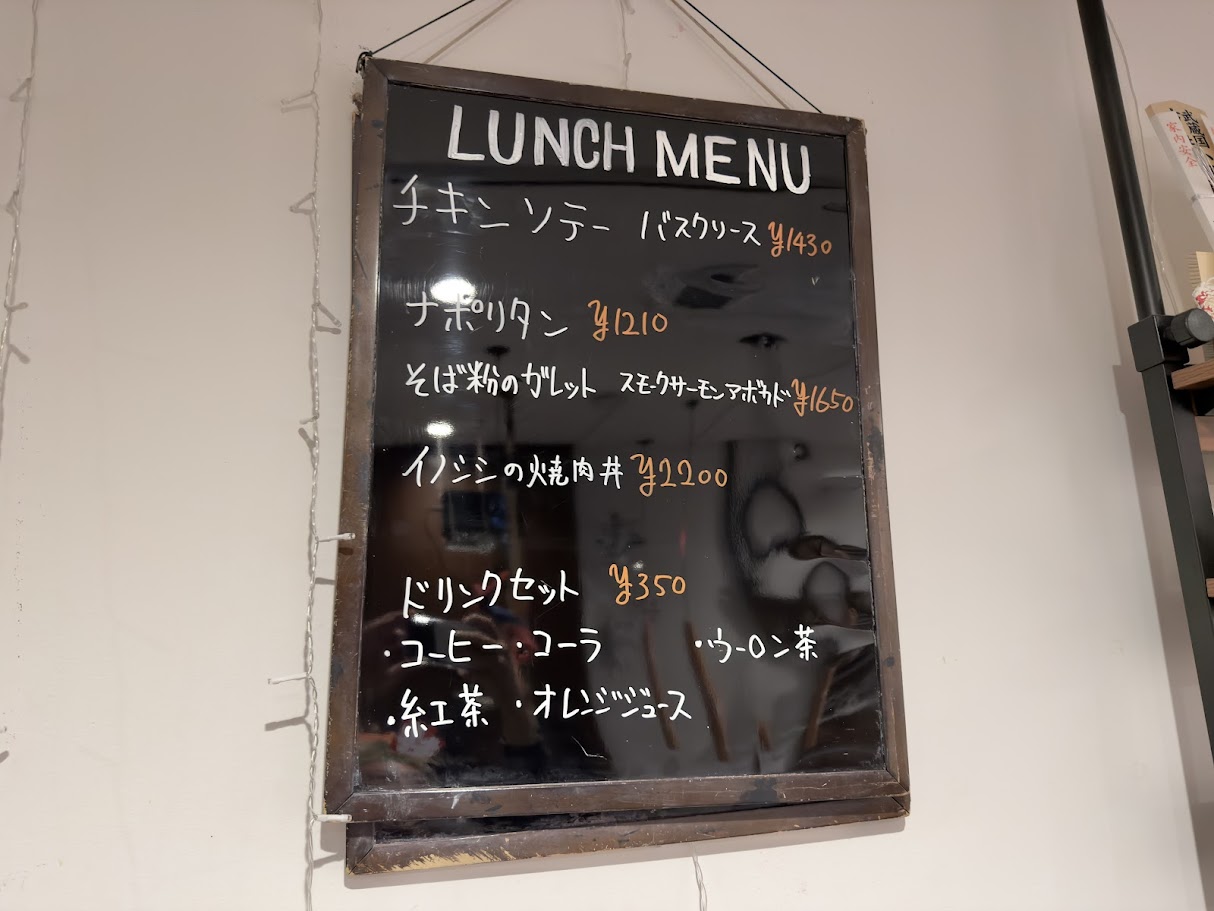 LUNCH MENU
チキンソテー バスクソース ¥1430
ナポリタン ¥1210
そば粉のガレット スモークサーモンアボカド ¥1650
イノシシの焼肉丼 ¥2200
ドリンクセット ¥350
・コーヒー ・コーラ ・ウーロン茶
・紅茶 ・オレンジジュース
武蔵国
家内安全